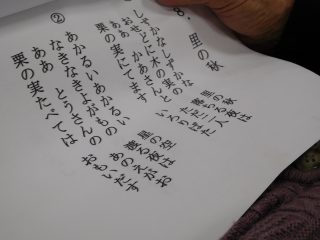 8. 里の秋
しずかなしずかな 里の秋
おせどに木の実の 落ちる夜は
ああ かあさんと ただ二人
栗の実にてます いろりばた
②
あかるいあかるい 星の空
なきなきよがもの 渡る夜は
ああ とうさんの あのえがお
栗の実たべては おもいだす